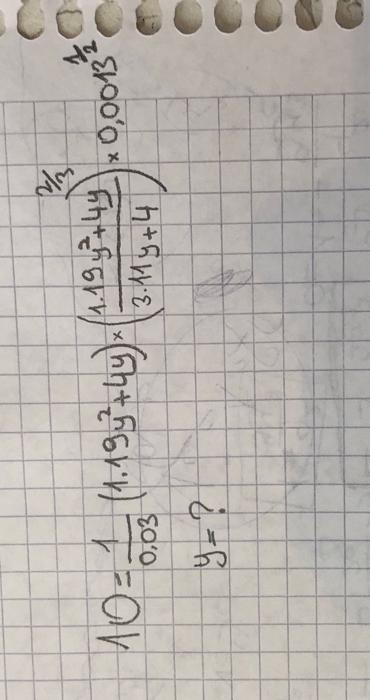 10 = 1/0,03 (1.19y² + 4y) × ((1.19y² + 4y)/(3.11y + 4))^2/3 × 0,0013^1/2
y = ?